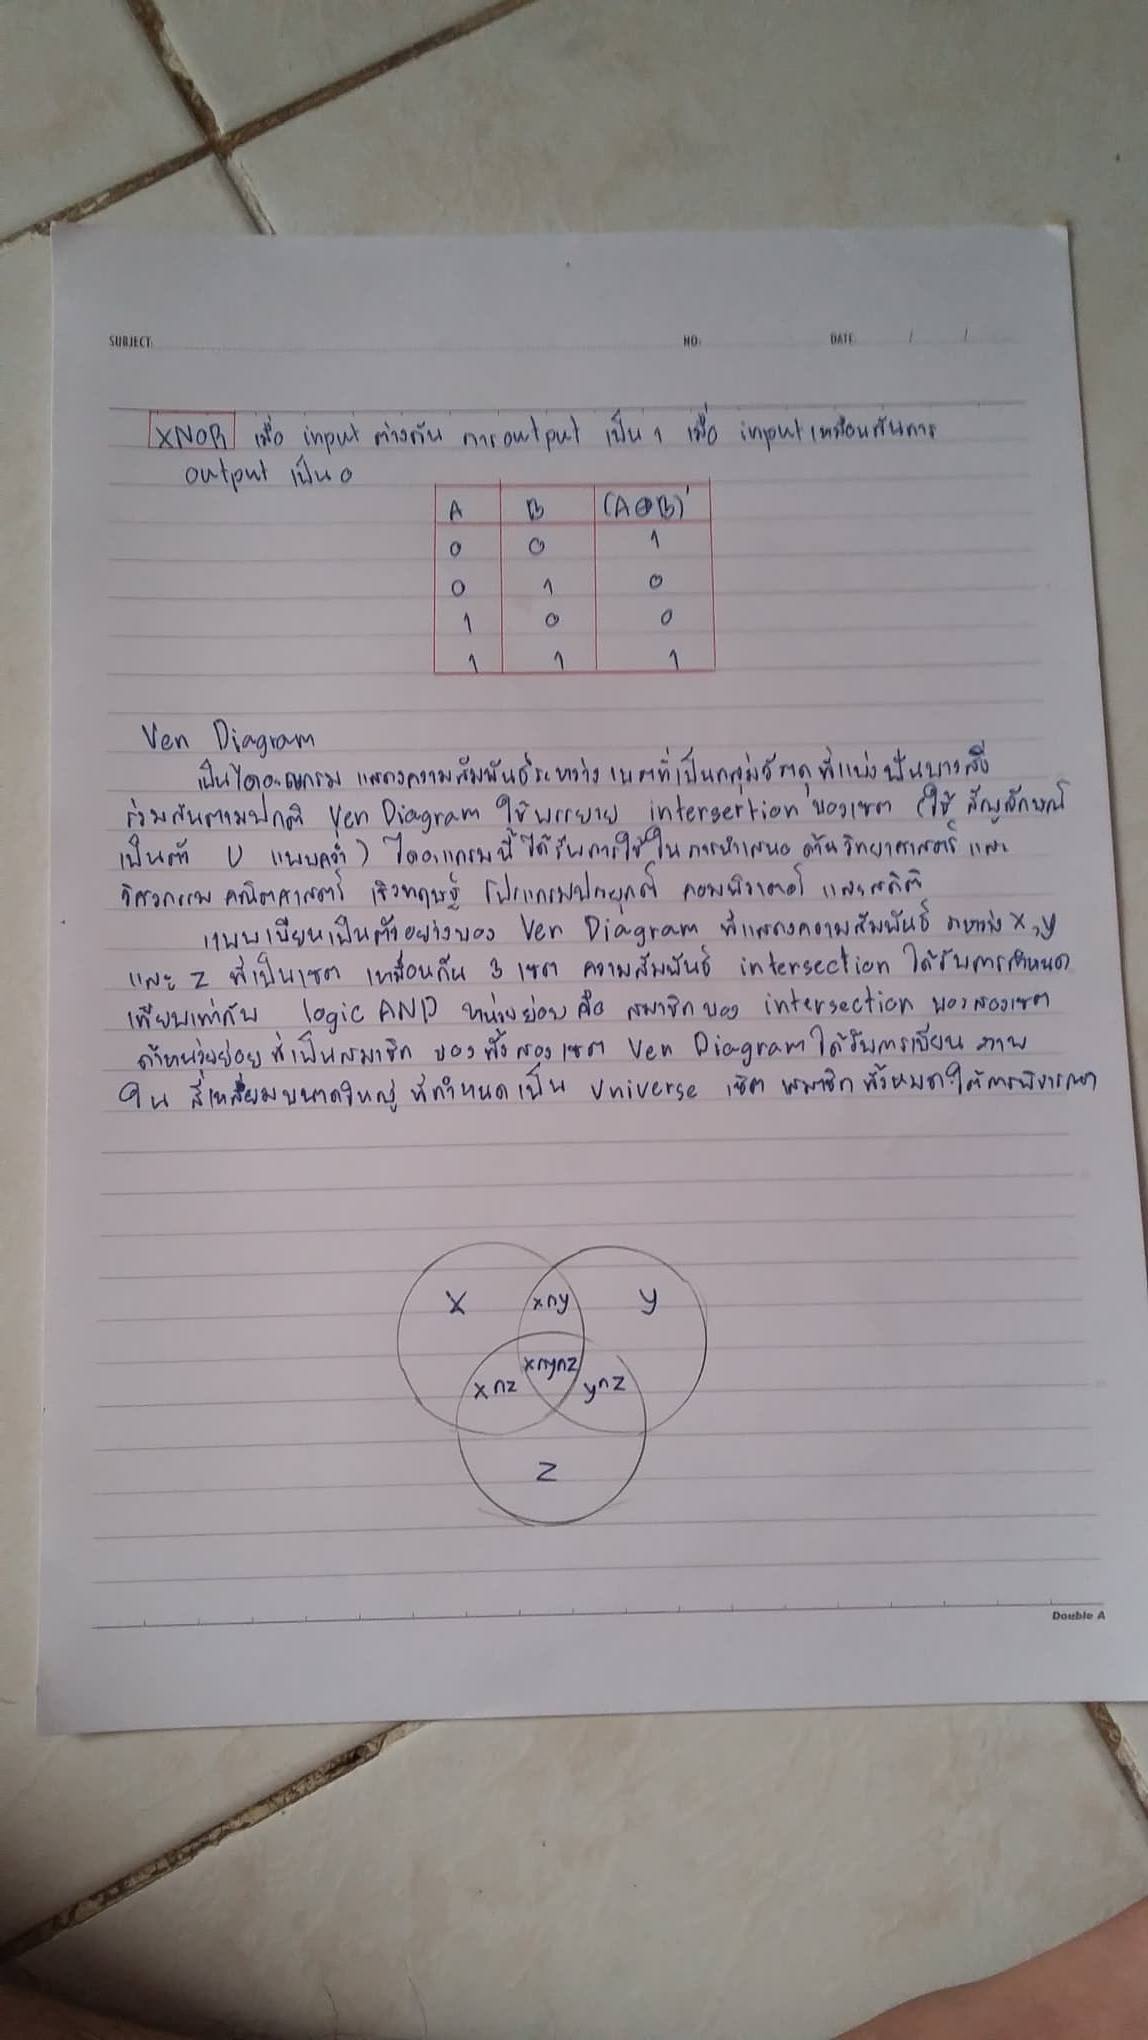 SUBJECT: NO. DATE / /
XNOR เมื่อ input ต่างกัน การ output เป็น 1 เมื่อ input เหมือนกันการ
output เป็น 0
A B (A⊕B)'
0 0 1
0 1 0
1 0 0
1 1 1
Ven Diagram
เป็นไดอะแกรม แสดงความสัมพันธ์ระหว่าง เซตที่เป็นกลุ่มวัตถุ ที่แบ่งปันบางสิ่ง
ร่วมกันตามปกติ Ven Diagram ใช้ intersection ของเซต (ใช้ สัญลักษณ์
เป็นตัว U แบบคว่ำ) ไดอะแกรมนี้ ได้รับการใช้ใน การนำเสนอ ด้านวิทยาศาสตร์ และ
วิศวกรรม คณิตศาสตร์ เชิงทฤษฎี โปรแกรมประยุกต์ คอมพิวเตอร์ และสถิติ
แบบเขียนเป็นตัวอย่างของ Ven Diagram ที่แสดงความสัมพันธ์ ระหว่าง x,y
และ z ที่เป็นเซต เหมือนกัน 3 เซต ความสัมพันธ์ intersection ได้รับการกำหนด
เทียบเท่ากับ logic AND หน่วยย่อย คือ สมาชิกของ intersection ของสองเซต
ถ้าหน่วยย่อย ที่เป็นสมาชิก ของ ทั้งสอง เซต Ven Diagram ได้รับการเขียน ภาพ
ใน สี่เหลี่ยมขนาดใหญ่ ที่กำหนดเป็น Universe เซต สมาชิก ทั้งหมด
x x∩y y
x∩y∩z
x∩z y∩z
z
Double A